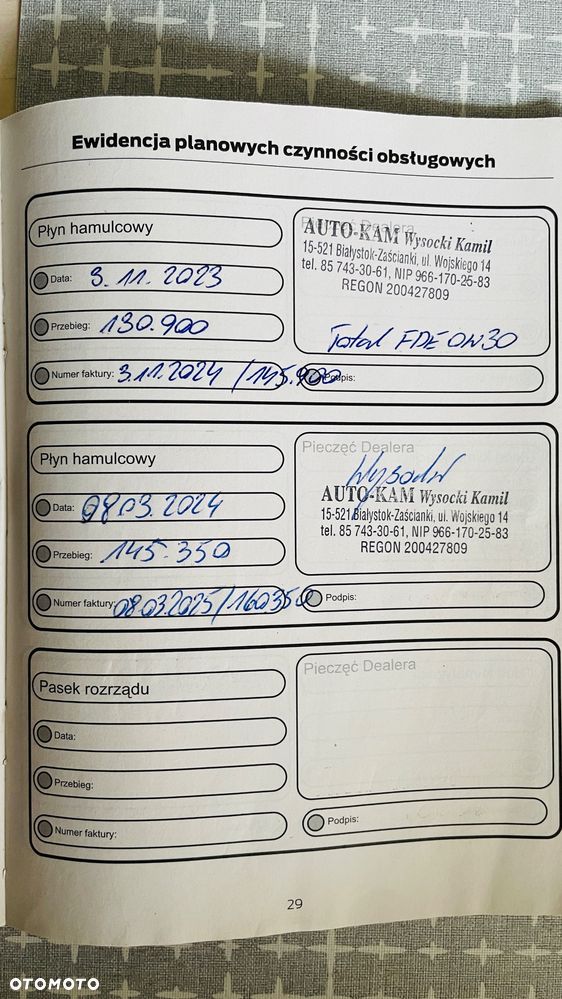 Ewidencja planowych czynności obsługowych
Płyn hamulcowy
Data: 3.11.2023
Przebieg: 130.900
Numer faktury: 3.11.2024 / 145.900
Pieczęć Dealera
AUTO-KAM Wysocki Kamil
15-521 Białystok-Zaścianki, ul. Wojskiego 14
tel. 85 743-30-61, NIP 966-170-25-83
REGON 200427809
Total FDE 0W30
Podpis:
Płyn hamulcowy
Data: 08.03.2024
Przebieg: 145.350
Numer faktury: 08.03.2025/160350
Pieczęć Dealera
AUTO-KAM Wysocki Kamil
15-521 Białystok-Zaścianki, ul. Wojskiego 14
tel. 85 743-30-61, NIP 966-170-25-83
REGON 200427809
Podpis:
Pasek rozrządu
Data:
Przebieg:
Numer faktury:
Pieczęć Dealera
Podpis:
29
OTOMOTO